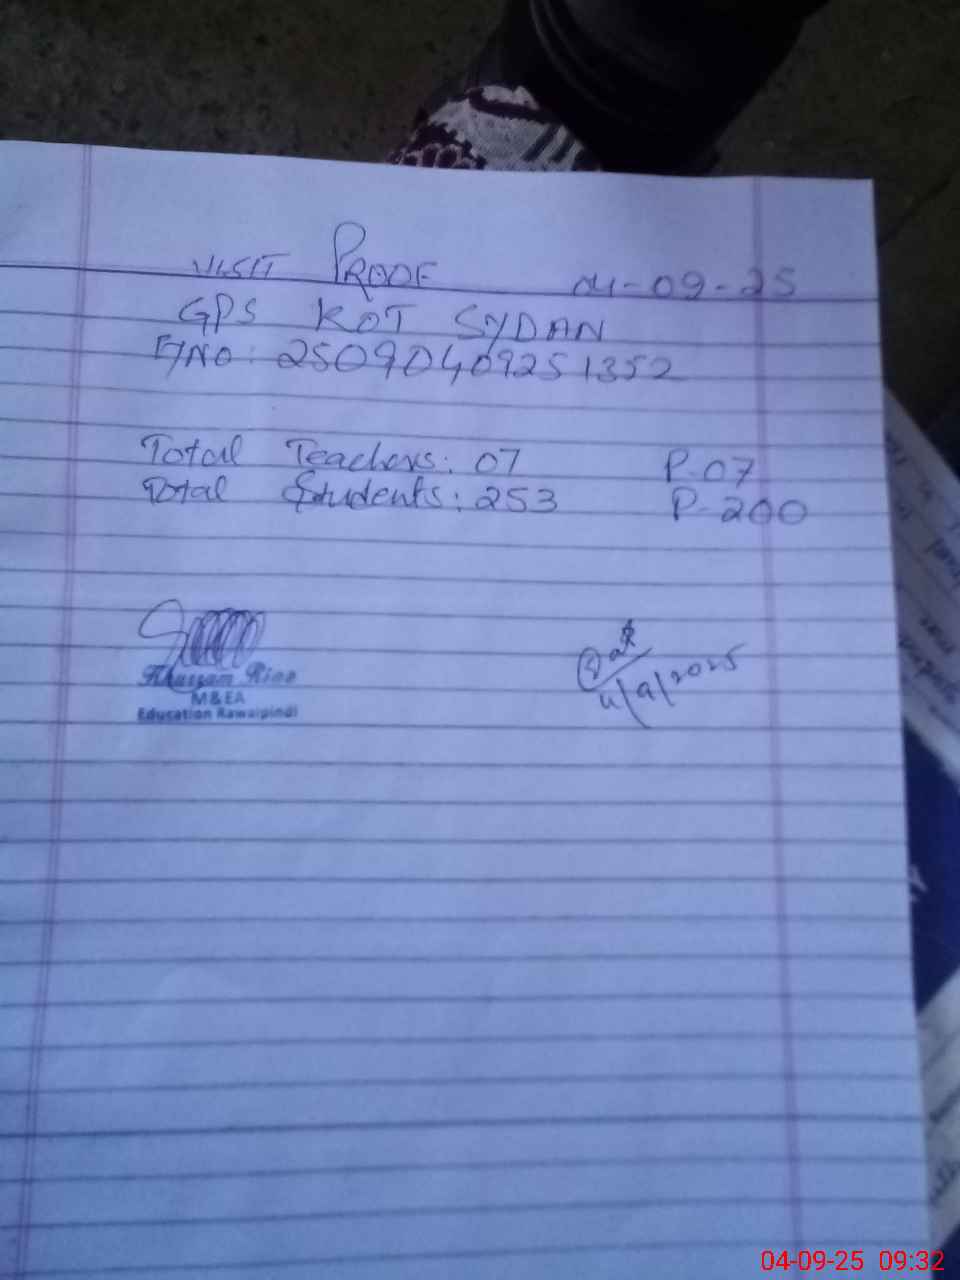 VISIT PROOF 04-09-25
GPS KOT SYDAN
F/NO: 25090409251352
Total Teachers: 07 P-07
Total Students: 253 P-200
M&EA
Education Rawalpindi
4/9/2025
04-09-25 09:32